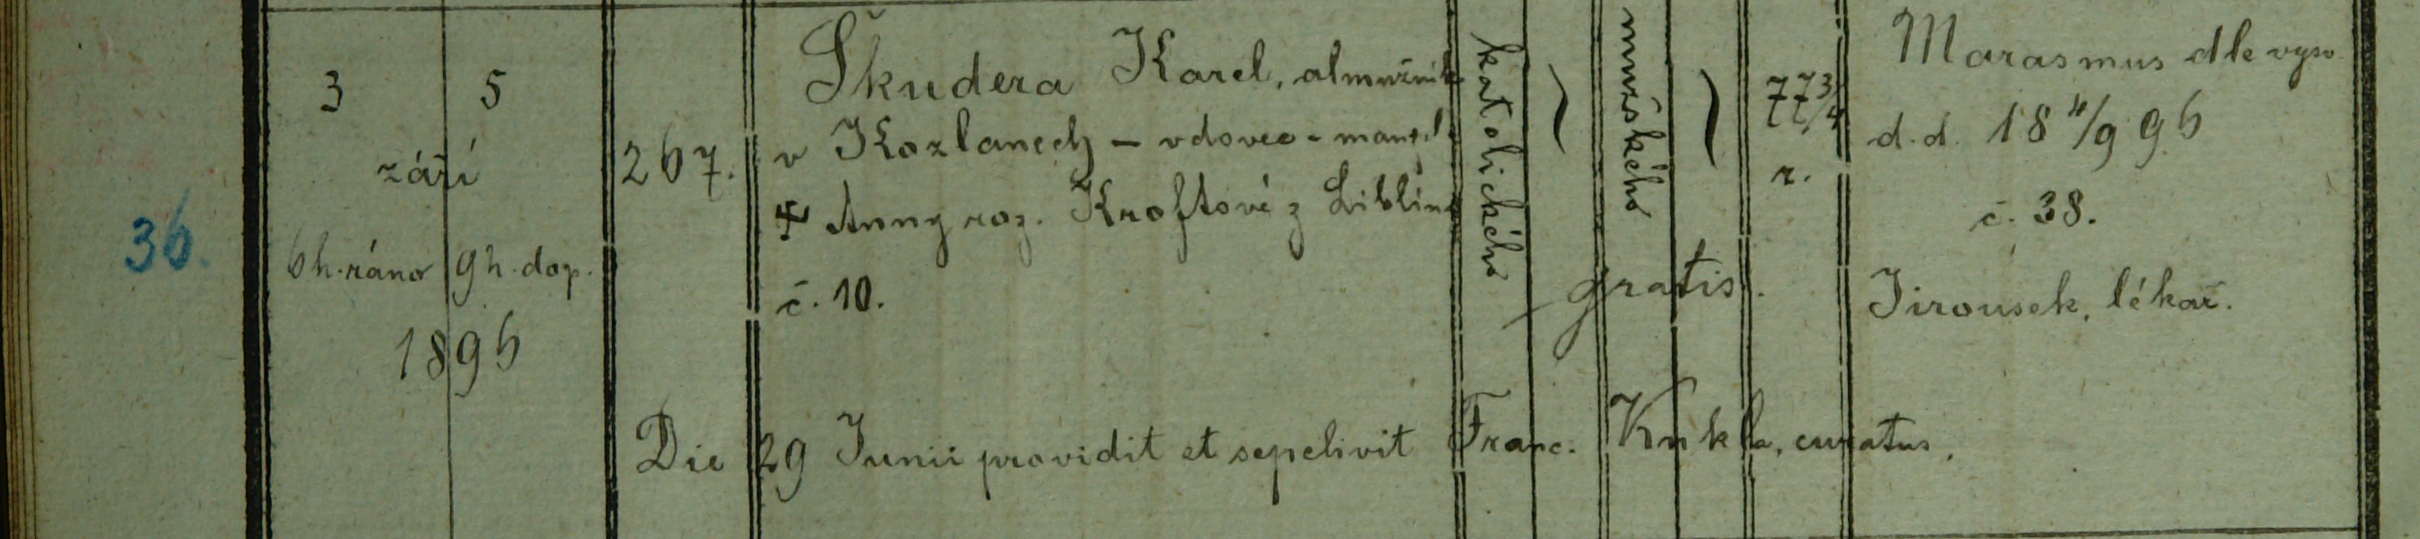 36.
3 5
září
6 h. ráno 9 h. dop.
1896
267.
Škudera Karel, almužník
v Kozlanech - vdovec - manžel
† Anny roz. Kroftové z Liblína
č. 10.
katolického
mužského
gratis.
77 3/4
r.
Marasmus dle vysv.
d. d. 18 4/9 96
č. 38.
Jirousek, lékař.
Die 29 Junii providit et sepelivit Franc. Kukla, curatus.